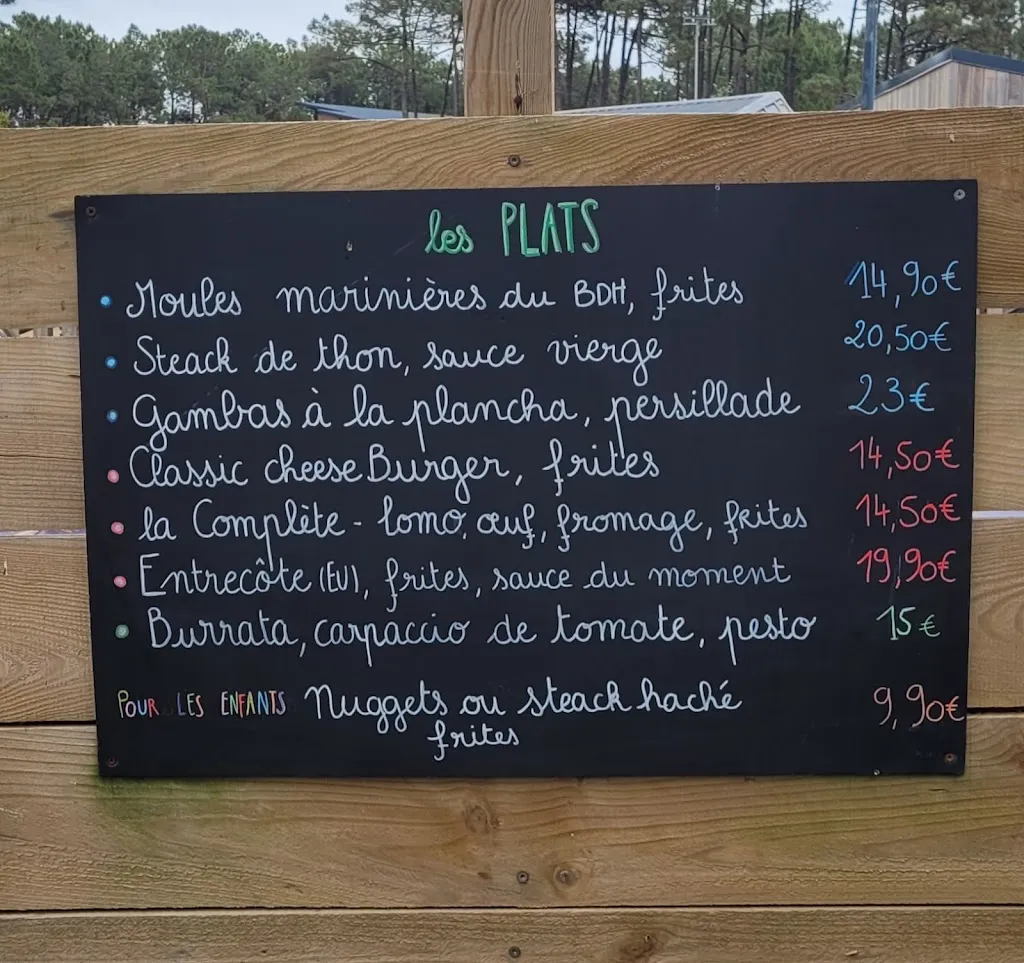 les PLATS
• Moules marinières du BDH, frites 14,90€
• Steack de thon, sauce vierge 20,50€
• Gambas à la plancha, persillade 23€
• Classic cheese Burger, frites 14,50€
• la Complète - lomo, œuf, fromage, frites 14,50€
• Entrecôte (EU), frites, sauce du moment 19,90€
• Burrata, carpaccio de tomate, pesto 15€
POUR LES ENFANTS Nuggets ou steack haché 9,90€
frites